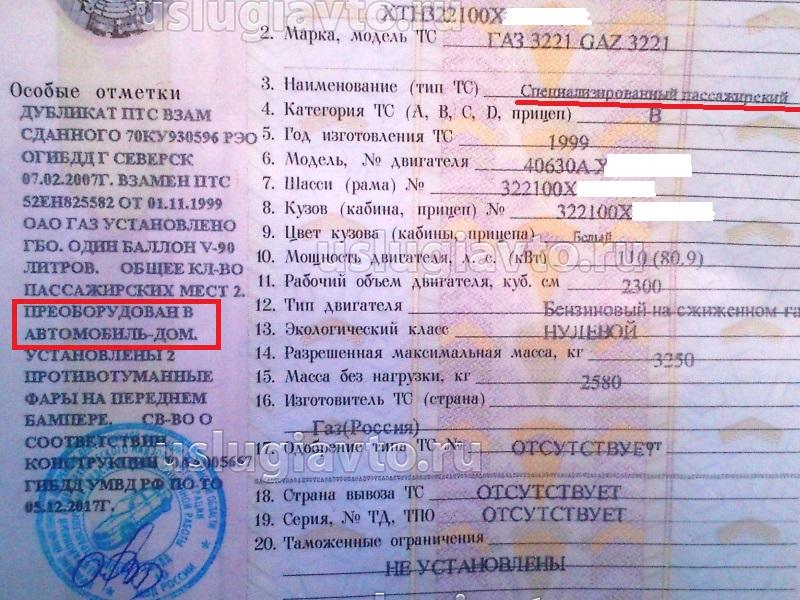 uslugiavto.ru
XTH322100X
2. Марка, модель ТС ГАЗ 3221 GAZ 3221
Особые отметки
ДУБЛИКАТ ПТС ВЗАМ
СДАННОГО 70КУ930596 РЭО
ОГИБДД Г СЕВЕРСК
07.02.2007Г. ВЗАМЕН ПТС
52ЕН825582 ОТ 01.11.1999
ОАО ГАЗ УСТАНОВЛЕНО
ГБО. ОДИН БАЛЛОН V-90
ЛИТРОВ. ОБЩЕЕ КЛ-ВО
ПАССАЖИРСКИХ МЕСТ 2.
ПРЕОБОРУДОВАН В
АВТОМОБИЛЬ-ДОМ.
УСТАНОВЛЕНЫ 2
ПРОТИВОТУМАННЫЕ
ФАРЫ НА ПЕРЕДНЕМ
БАМПЕРЕ. СВ-ВО О
СООТВЕТСТВИИ
КОНСТРУКЦИИ
ГИБДД УМВД РФ ПО ТО
05.12.2017Г.
3. Наименование (тип ТС) Специализированный пассажирский
4. Категория ТС (А, В, С, D, прицеп) В
5. Год изготовления ТС 1999
6. Модель, № двигателя 40630А X
7. Шасси (рама) № 322100X
8. Кузов (кабина, прицеп) № 322100X
9. Цвет кузова (кабины, прицепа) Белый
uslugiavto.ru
10. Мощность двигателя, л. с. (кВт) 110 (80.9)
11. Рабочий объем двигателя, куб. см 2300
12. Тип двигателя Бензиновый на сжиженном га
13. Экологический класс НУЛЕВОЙ
14. Разрешенная максимальная масса, кг 3250
15. Масса без нагрузки, кг 2580
16. Изготовитель ТС (страна)
Газ(Россия)
uslugiavto.ru
17. Одобрение типа ТС № ОТСУТСТВУЕТ от
18. Страна вывоза ТС ОТСУТСТВУЕТ
19. Серия, № ТД, ТПО ОТСУТСТВУЕТ
20. Таможенные ограничения
НЕ УСТАНОВЛЕНЫ
uslugiavto.ru